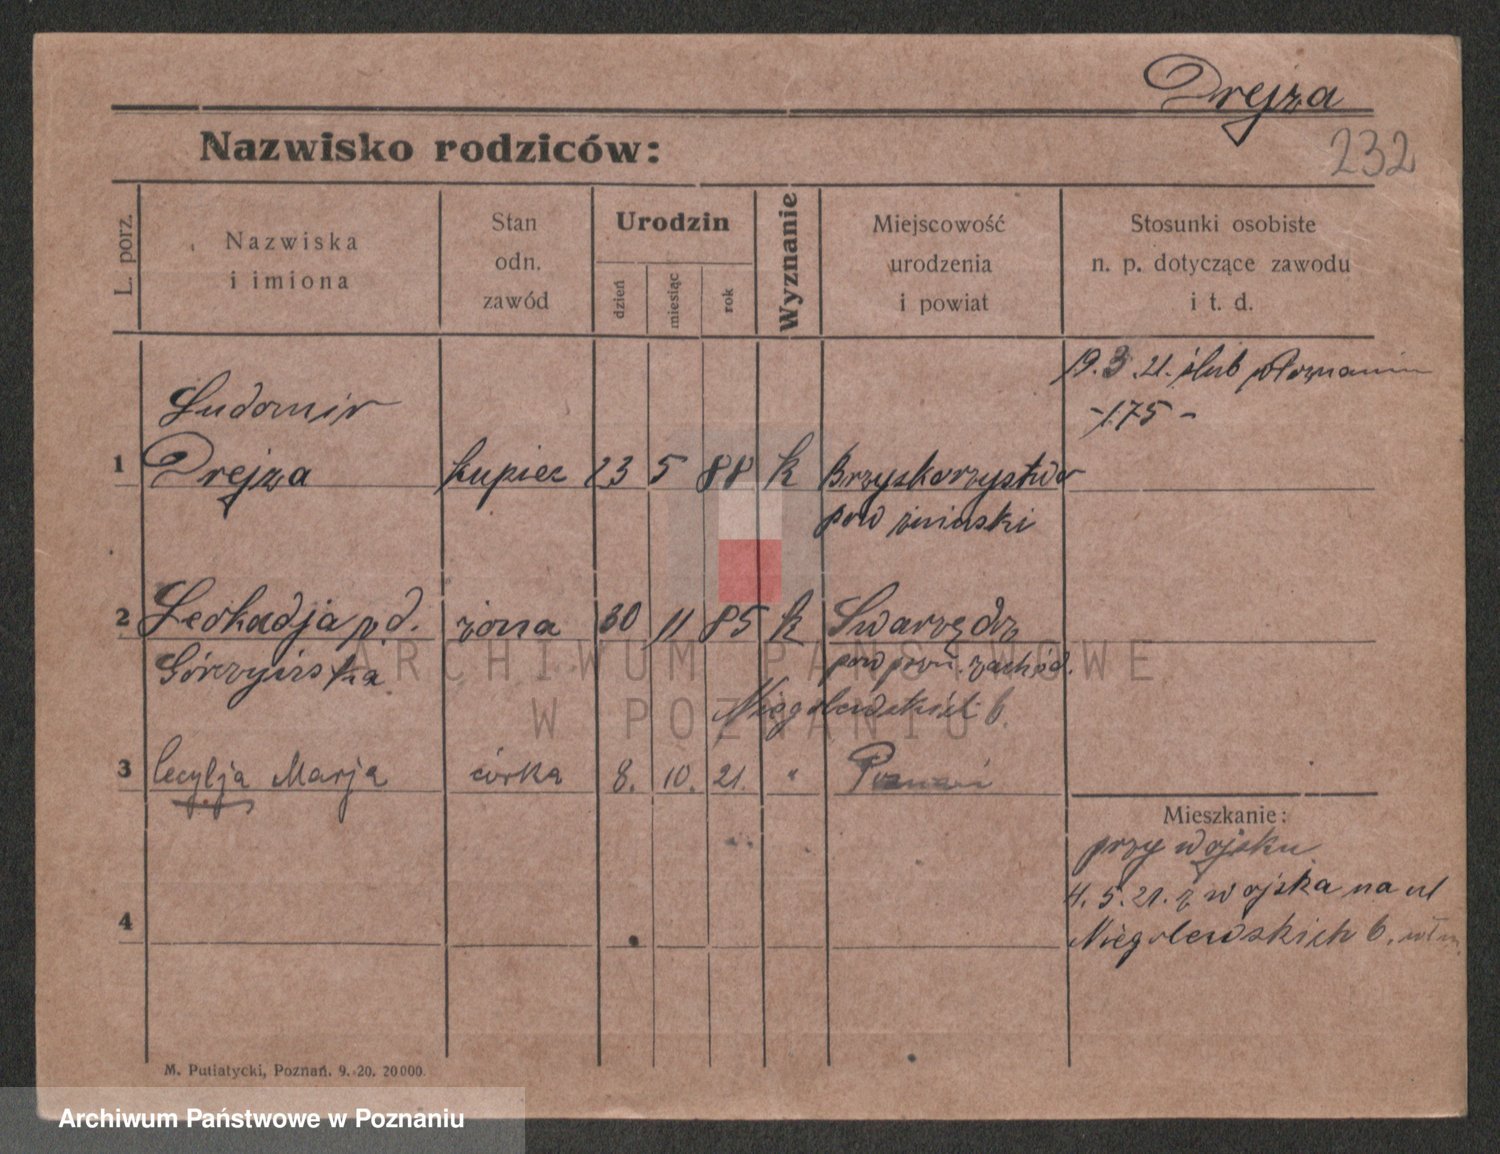 Drejza
232
Nazwisko rodziców:
L. porz.
Nazwiska
i imiona
Stan
odn.
zawód
Urodzin
dzień
miesiąc
rok
Wyznanie
Miejscowość
urodzenia
i powiat
Stosunki osobiste
n. p. dotyczące zawodu
i t. d.
19. 3. 21. ślub w Poznaniu
- 175 -
Ludomir
1 Drejza kupiec 23 5 88 k Brzyskorzystwo
pow żniński
2 Leokadja p. d. żona 30 11 85 k Swarzędz
Górzyńska pow pozń. zachod.
Niegolewskich 6.
3 Cecylja Marja córka 8. 10. 21. " Poznań
Mieszkanie:
przy wojsku
4. 5. 21. z wojska na ul
4
Niegolewskich 6.
M. Putiatycki, Poznań. 9. 20. 20000.
ARCHIWUM PAŃSTWOWE
W POZNANIU
Archiwum Państwowe w Poznaniu